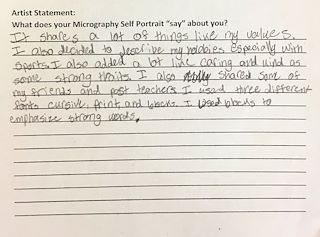 Artist Statement:
What does your Micrography Self Portrait "say" about you?
It shares a lot of things like my values.
I also decided to describe my hobbies especially with
sports. I also added a lot like caring and kind as
some strong traits. I also shared some of
my friends and past teachers. I used three different
fonts cursive, print, and blocks. I used blocks to
emphasize strong words.